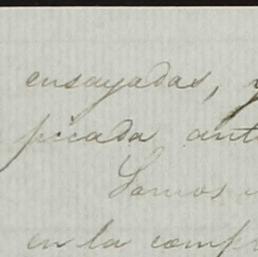 ensayadas, y
picada ant
Somos
en la comp